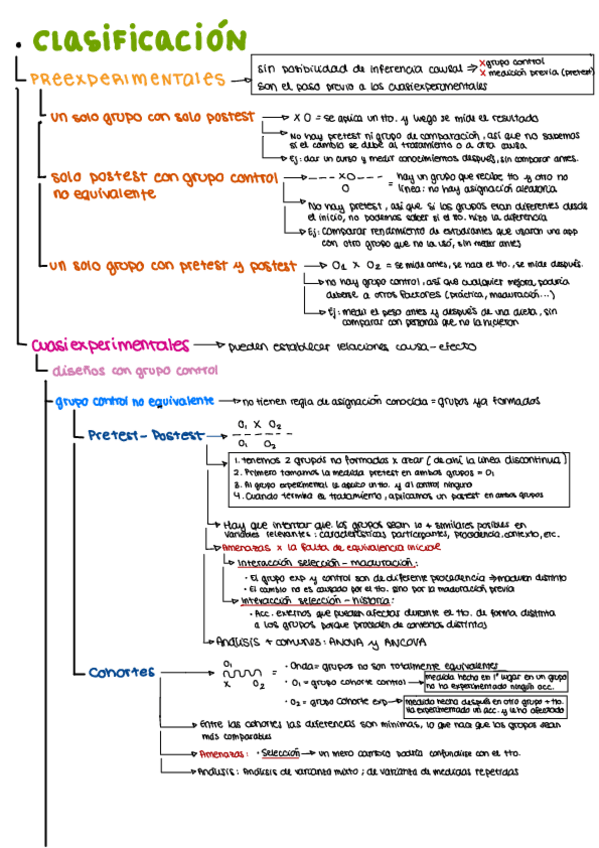 . CLASIFICACIÓN
PREEXPERIMENTALES
sin posibilidad de inferencia causal ⇒ x grupo control
x medición previa (pretest)
son el paso previo a los cuasiexperimentales
un solo grupo con solo postest
X O = se aplica un tto. y luego se mide el resultado
No hay pretest ni grupo de comparación, así que no sabemos
si el cambio se debe al tratamiento o a otra causa
Ej: dar un curso y medir conocimientos después, sin comparar antes.
solo postest con grupo control
no equivalente
- - - X O - - -
O
= hay un grupo que recibe tto y otro no
línea: no hay asignación aleatoria
No hay pretest, así que si los grupos eran diferentes desde
el inicio, no podemos saber si el tto. hizo la diferencia
Ej: Comparar rendimiento de estudiantes que usaron una app
con otro grupo que no la usó, sin medir antes
un solo grupo con pretest y postest
O1 X O2 = se mide antes, se hace el tto., se mide después.
no hay grupo control, así que cualquier mejora podría
deberse a otros factores (práctica, maduración...)
Ej: medir el peso antes y después de una dieta, sin
comparar con personas que no la hicieron
cuasiexperimentales
pueden establecer relaciones causa-efecto
diseños con grupo control
grupo control no equivalente
no tienen regla de asignación conocida = grupos ya formados
Pretest-Postest
O1 X O2
- - - - - -
O1 O2
1. tenemos 2 grupos no formados x azar (de ahí la línea discontinua)
2. Primero tomamos la medida pretest en ambos grupos = O1
3. Al grupo experimental le aplico un tto. y al control ninguno
4. Cuando termina el tratamiento, aplicamos un postest en ambos grupos
Hay que intentar que los grupos sean lo + similares posibles en
variables relevantes: características participantes, procedencia, contexto, etc.
Amenazas x la falta de equivalencia inicial
Interacción selección-maduración:
· El grupo exp y control son de diferente procedencia ⇒ maduren distinto
· El cambio no es causado por el tto. sino por la maduración previa
Interacción selección-historia:
· Acc. externos que pueden afectar durante el tto. de forma distinta
a los grupos porque proceden de contextos distintos
Análisis + comunes: ANOVA y ANCOVA
Cohortes
O1
X O2
=
· Onda = grupos no son totalmente equivalentes
· O1 = grupo cohorte control
medida hecha en 1º lugar en un grupo
no ha experimentado ningún acc.
· O2 = grupo cohorte exp
medida hecha después en otro grupo + tto.
Ha experimentado un acc. y le ha afectado
Entre las cohortes las diferencias son mínimas, lo que hace que los grupos sean
más comparables
Amenazas: · Selección → un mero cambio podría confundirse con el tto.
Análisis: Análisis de varianza mixto; de varianza de medidas repetidas